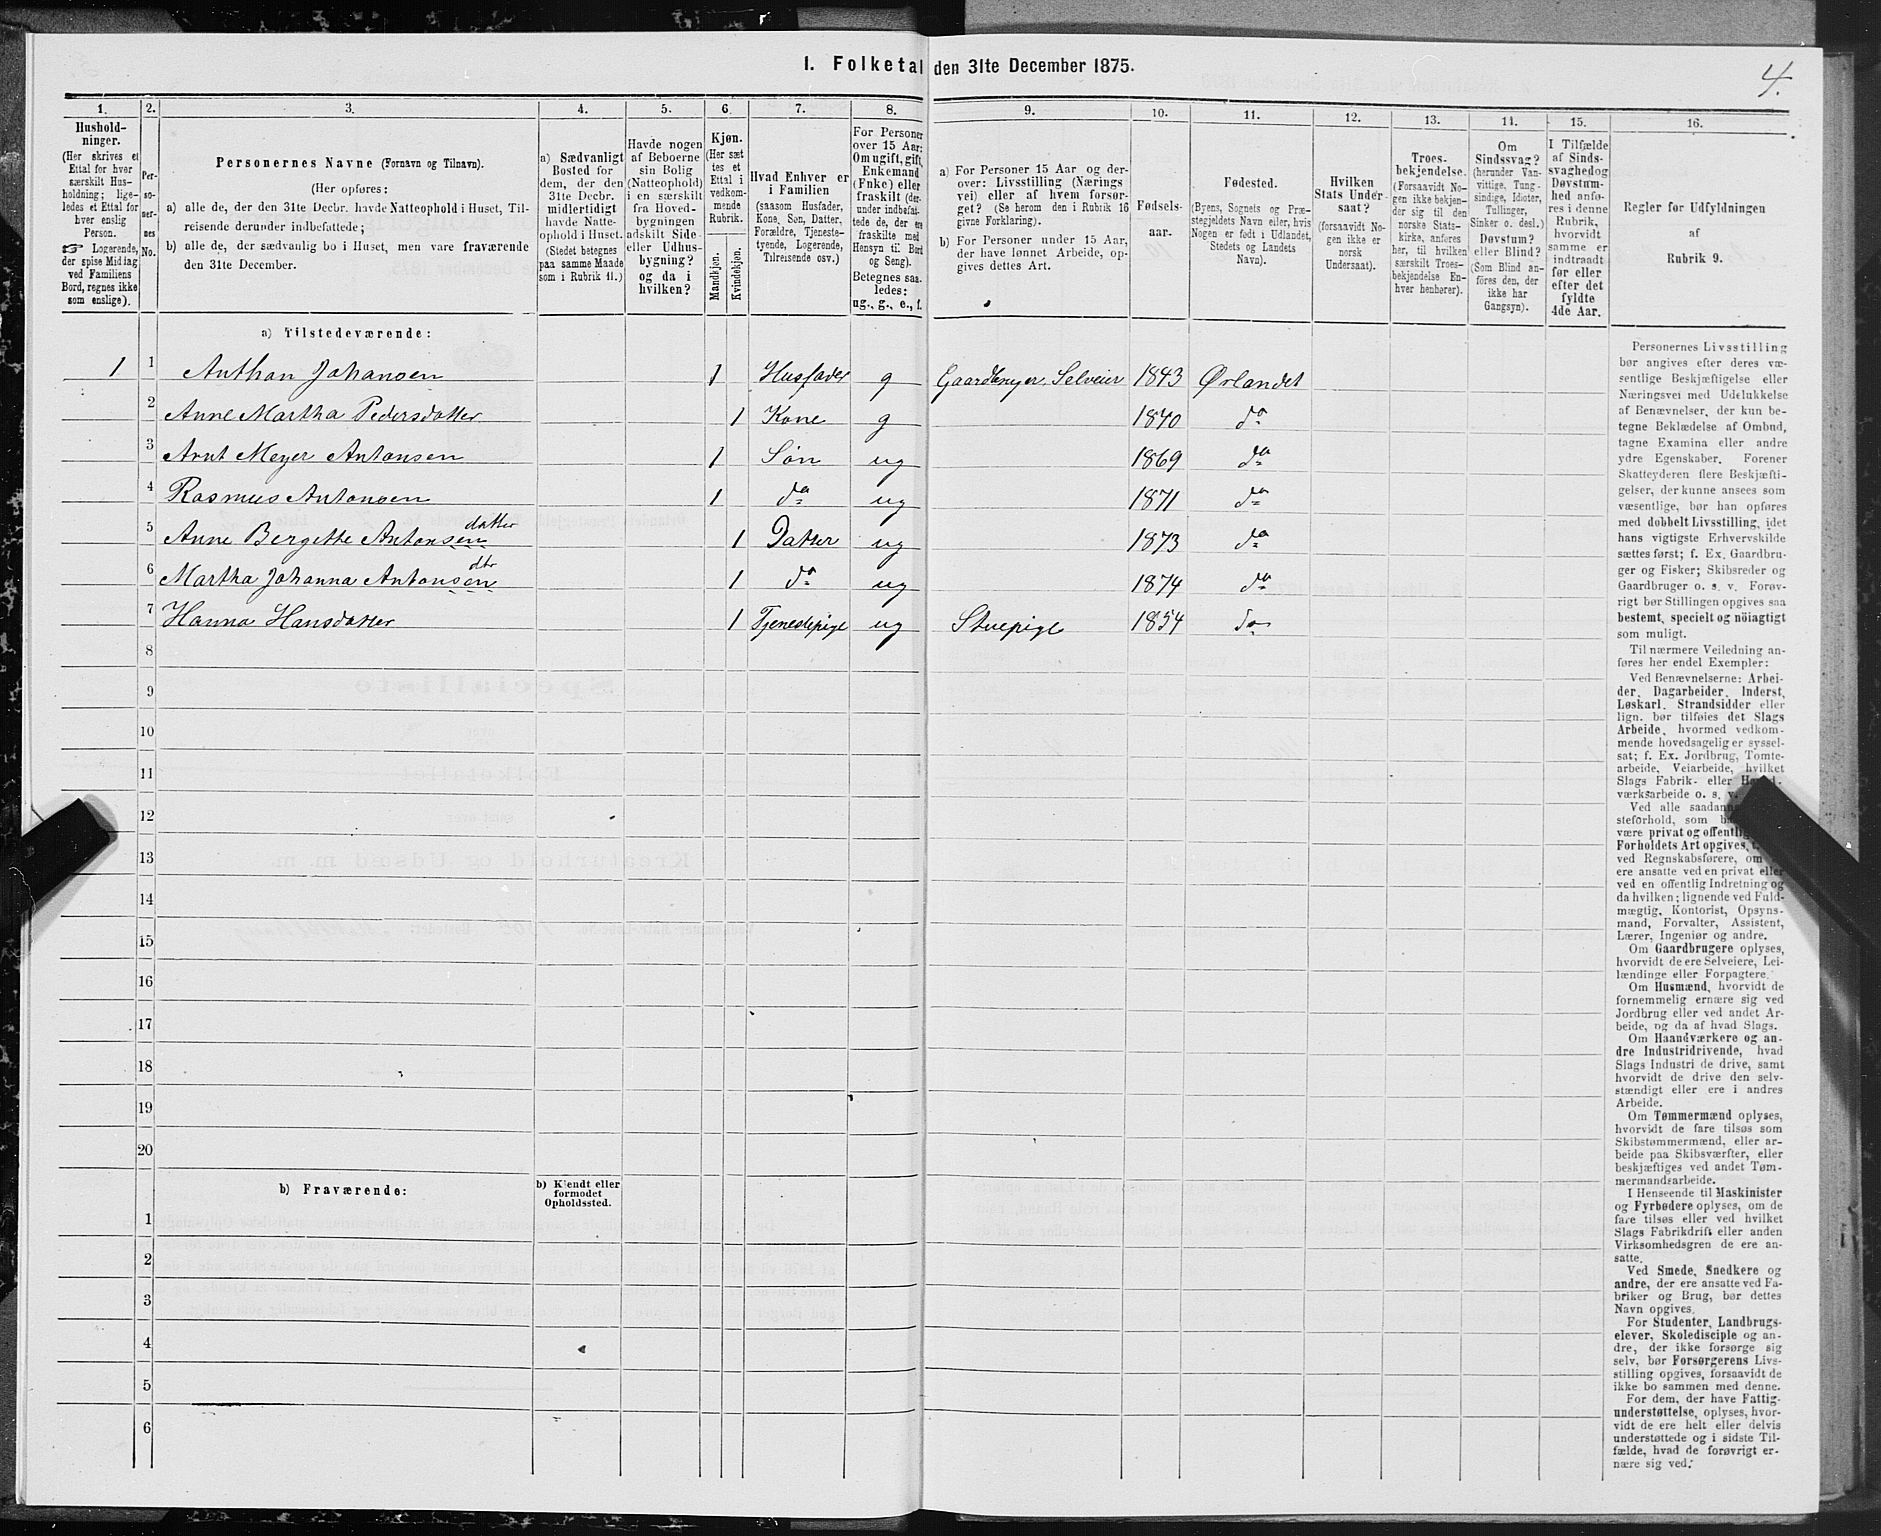 1. Folketal den 31te December 1875.
4.
1.
Hushold-
ninger.
(Her skrives et
Ettal for hver
særskilt Hus-
holdning; lige-
ledes et Ettal for
hver enslig
Person.
☞ Logerende,
der spise Middag
ved Familiens
Bord, regnes ikke
som enslige).
2.
Per-
so-
ner-
nes
No.
3.
Personernes Navne (Fornavn og Tilnavn).
(Her opføres:
a) alle de, der den 31te Decbr. havde Natteophold i Huset, Til-
reisende derunder indbefattede;
b) alle de, der sædvanlig bo i Huset, men vare fraværende
den 31te December.
4.
a) Sædvanligt
Bosted for
dem, der den
31te Decbr.
midlertidigt
havde Natte-
ophold i Huset.
(Stedet betegnes
paa samme Maade
som i Rubrik 11.)
5.
Havde nogen
af Beboerne
sin Bolig
(Natteophold)
i en særskilt
fra Hoved-
bygningen
adskilt Side-
eller Udhus-
bygning?
og da i
hvilken?
6.
Kjøn.
(Her sæt
tes et
Ettal i
vedkom-
mende
Rubrik.
Mandkjøn.
Kvindekjøn.
7.
Hvad Enhver er
i Familien
(saasom Husfader,
Kone, Søn, Datter,
Forældre, Tjeneste-
tyende, Logerende,
Tilreisende osv.)
8.
For Personer
over 15 Aar:
Om ugift, gift,
Enkemand
(Enke) eller
fraskilt (der-
under indbefat-
tede de, der ere
fraskilte med
Hensyn til Bord
og Seng).
Betegnes saa-
ledes:
ug., g., e., f.
9.
a) For Personer 15 Aar og der-
over: Livsstilling (Nærings
vei) eller af hvem forsør-
get? (Se herom den i Rubrik 16
givne Forklaring).
b) For Personer under 15 Aar,
der have lønnet Arbeide, op-
gives dettes Art.
10.
Fødsels-
aar.
11.
Fødested.
(Byens, Sognets og Præ-
stegjeldets Navn eller, hvis
Nogen er født i Udlandet,
Stedets og Landets
Navn).
12.
Hvilken
Stats Under-
saat?
(forsaavidt No-
gen ikke er
norsk
Undersaat).
13.
Troes-
bekjendelse.
(Forsaavidt No-
gen ikke bekjen-
der sig til den
norske Stats-
kirke, anføres
her, til hvilken
særskilt Troes-
bekjendelse En-
hver henhører).
14.
Om
Sindssvag?
(herunder Van-
vittige, Tung-
sindige, Idioter,
Tullinger,
Sinker o. desl.)
Døvstum?
eller Blind?
(Som Blind an-
føres den, der
ikke har
Gangsyn).
15.
I Tilfælde
af Sinds-
svaghed og
Døvstum-
hed anfø-
res i denne
Rubrik,
hvorvidt
samme er
indtraadt
før eller
efter det
fyldte
4de Aar.
16.
Regler for Udfyldningen
af
Rubrik 9.
a) Tilstedeværende:
1 1 Anthon Johansen 1 Husfader g Gaardbruger, Selveier 1843 Ørlandet
2 Anne Martha Pedersdatter 1 Kone g 1840 do
3 Arnt Meyer Antonsen 1 Søn ug 1869 do
4 Rasmus Antonsen 1 do ug 1871 do
datter
5 Anne Bergette Antonsen 1 Datter ug 1873 do
dtr
6 Martha Johanna Antonsen 1 do ug 1874 do
7 Hanna Hansdatter 1 Tjenestepige ug Stuepige 1854 do
8
9
10
11
12
13
14
15
16
17
18
19
20
b) Fraværende:
b) Kjendt eller
formodet
Opholdssted.
1
2
3
4
5
6
Personernes Livsstilling
bør angives efter deres væ-
sentlige Beskjæftigelse eller
Næringsvei med Udelukkelse
af Benævnelser, der kun be-
tegne Beklædelse af Ombud,
tagne Examina eller andre
ydre Egenskaber. Forener
Skatteyderen flere Beskjæfti-
gelser, der kunne ansees som
væsentlige, bør han opføres
med dobbelt Livsstilling, idet
hans vigtigste Erhvervskilde
sættes først; f. Ex. Gaardbru-
ger og Fisker; Skibsreder og
Gaardbruger o. s. v. Forøv-
rigt bør Stillingen opgives saa
bestemt, specielt og nöiagtigt
som muligt.
Til nærmere Veiledning an-
føres her endel Exempler:
Ved Benævnelserne: Arbei-
der, Dagarbeider, Inderst,
Løskarl, Strandsidder eller
lign. bør tilføies det Slags
Arbeide, hvormed vedkom-
mende hovedsagelig er syssel-
sat; f. Ex. Jordbrug, Tomte-
arbeide, Veiarbeide, hvilket
Slags Fabrik- eller
værksarbeide o. s. v.
Ved alle saadanne
steforhold, som
være privat og offentlig
Forholdets Art opgives,
ved Regnskabsførere, om
ere ansatte ved en privat eller
ved en offentlig Indretning og
da hvilken; lignende ved Fuld-
mægtig, Kontorist, Opsyns-
mand, Forvalter, Assistent,
Lærer, Ingeniør og andre.
Om Gaardbrugere oplyses,
hvorvidt de ere Selveiere, Lei-
lændinge eller Forpagtere.
Om Husmænd, hvorvidt de
fornemmelig ernære sig ved
Jordbrug eller ved andet Ar-
beide, og da af hvad Slags.
Om Haandværkere og an-
dre Industridrivende, hvad
Slags Industri de drive, samt
hvorvidt de drive den selv-
stændigt eller ere i andres
Arbeide.
Om Tømmermænd oplyses,
hvorvidt de fare tilsøs som
Skibstømmermænd, eller ar-
beide paa Skibsværfter, eller
beskjæftiges ved andet Tøm-
mermandsarbeide.
I Henseende til Maskinister
og Fyrbødere oplyses, om de
fare tilsøs eller ved hvilket
Slags Fabrikdrift eller anden
Virksomhedsgren de ere an-
satte.
Ved Smede, Snedkere og
andre, der ere ansatte ved Fa-
briker og Brug, bør dettes
Navn opgives.
For Studenter, Landbrugs-
elever, Skoledisciple og an-
dre, der ikke forsørge sig
selv, bør Forsørgerens Livs-
stilling opgives, forsaavidt de
ikke bo sammen med denne.
For dem, der have Fattig-
understøttelse, oplyses, hvor-
vidt de ere helt eller delvis
understøttede og i sidste Til-
fælde, hvad de forøvrigt er-
nære sig ved.